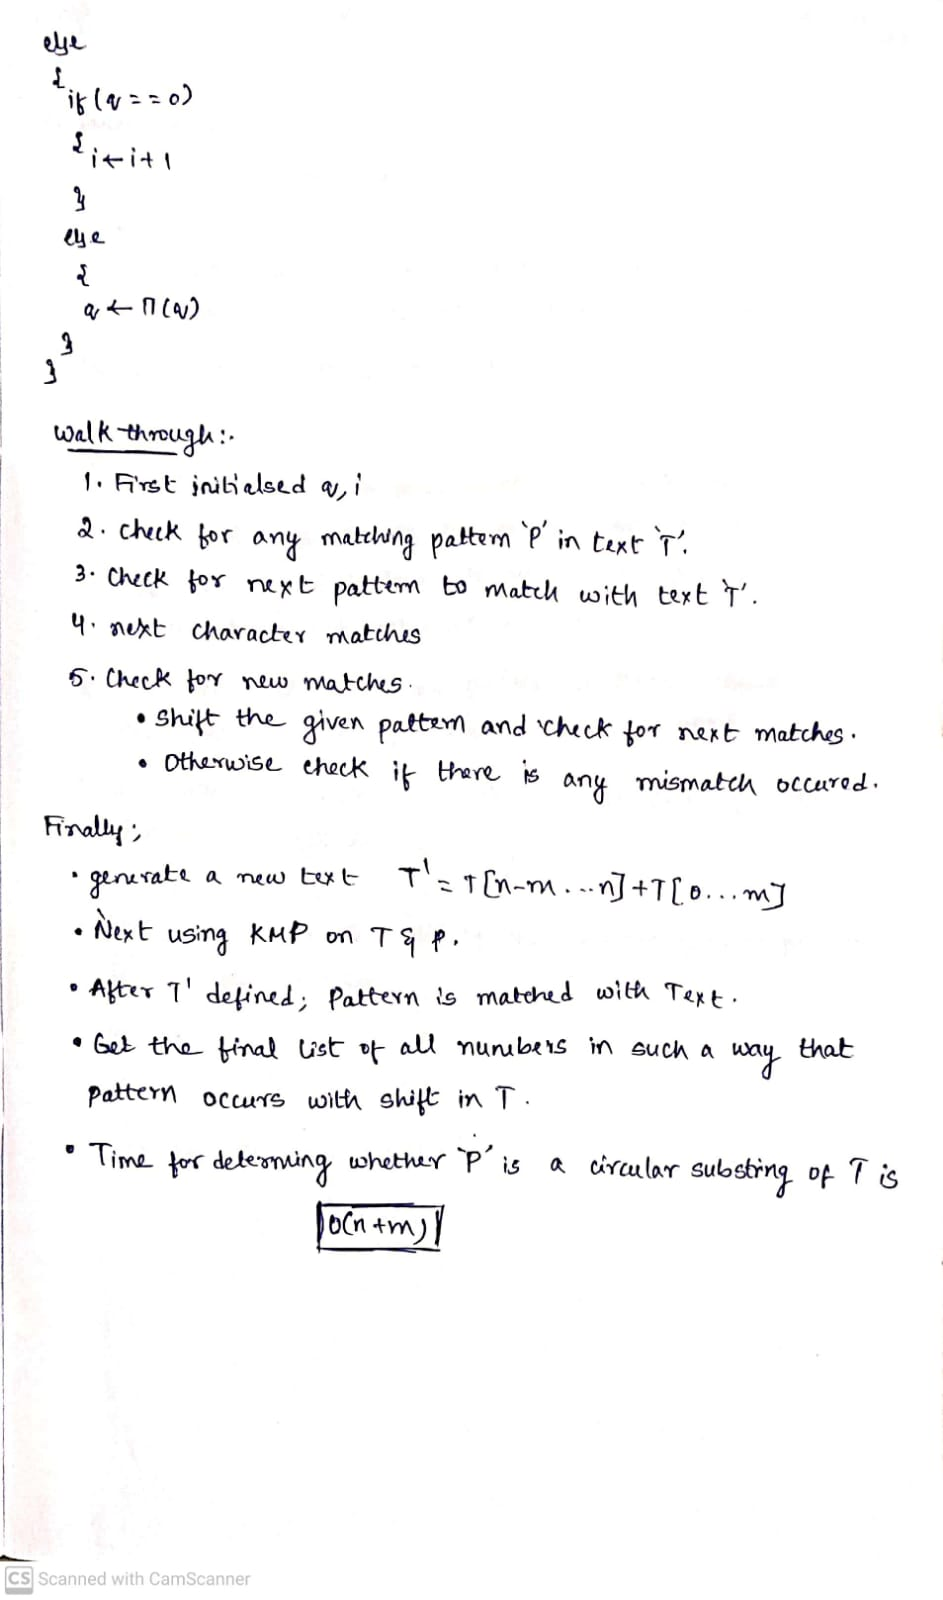 else
{
if (q = = 0)
{
i ← i + 1
}
else
{
q ← Π (q)
}
}
Walk through :-
1. First initialsed q, i
2. check for any matching pattern 'P' in text 'T'.
3. Check for next pattern to match with text 'T'.
4. next character matches
5. Check for new matches.
• Shift the given pattern and check for next matches.
• Otherwise check if there is any mismatch occured.
Finally;
• generate a new text T' = T [n-m . ... n] + T [0 ... m]
• Next using KMP on T & P.
• After T' defined; Pattern is matched with Text.
• Get the final list of all numbers in such a way that
pattern occurs with shift in T.
• Time for determing whether 'P' is a circular substring of T is
O(n+m)
CS Scanned with CamScanner